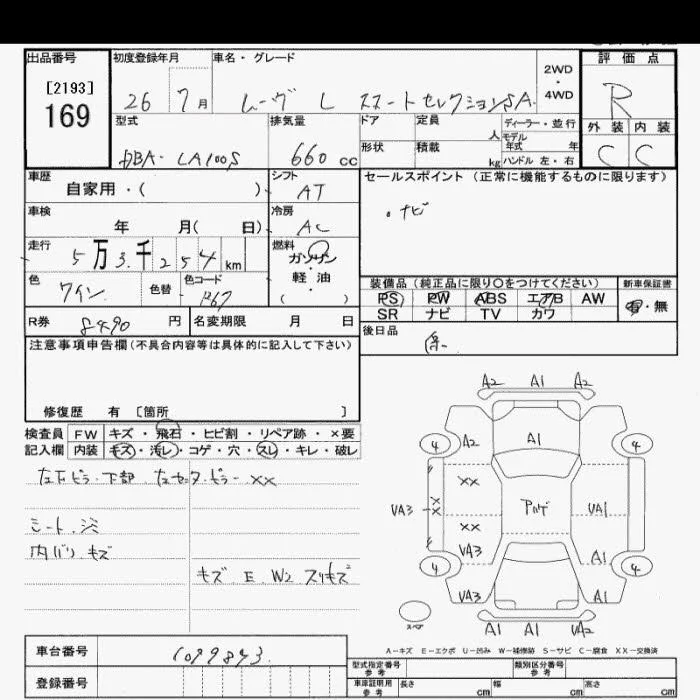 出品番号 初度登録年月 車名・グレード 評価点
[2193]
169
26 7月 ムーヴ L スマートセレクションSA
2WD
・
4WD
R
型式 排気量 ドア 定員 人 ディーラー・並行 外装 内装
DBA- LA100S 660 cc 形状 積載 kg モデル年式 年 C C
ハンドル 左・右
車歴 シフト セールスポイント(正常に機能するものに限ります)
自家用・( ) AT
・ナビ
車検 冷房
年 月( 日) AC
走行 燃料
5万3千254km ガソリン
・
軽油
( )
色 色替 色コード 装備品(純正品に限り○をつけてください) 新車保証書
ワイン R67 PS PW ABS エアB AW 有・無
SR ナビ TV カワ
R券 8490 円 名変期限 月 日 後日品
注意事項申告欄(不具合内容等は具体的に記入して下さい)
修復歴 有 [箇所 ]
検査員 FW キズ・飛石・ヒビ割・リペア跡・×要
記入欄 内装 キズ・汚レ・コゲ・穴・スレ・キレ・破レ
下部 左センターピラー XX
シート シミ
内バリ キズ
キズ E W2 スリキズ
A2 A1 A2
4 A2 A1 4
XX
VA3 XX アルゲ UA1
XX
VA3 A1
4 4
VA3 A1
A1 A1 UA2
スペア
A-キズ E-エクボ U-凹み W-補修跡 S-サビ C-腐食 XX-交換済
車台番号 1099843
登録番号
型式指定番号 参考 類別区分番号 参考
車庫証明用 参考 長さ cm 幅 cm 高さ cm